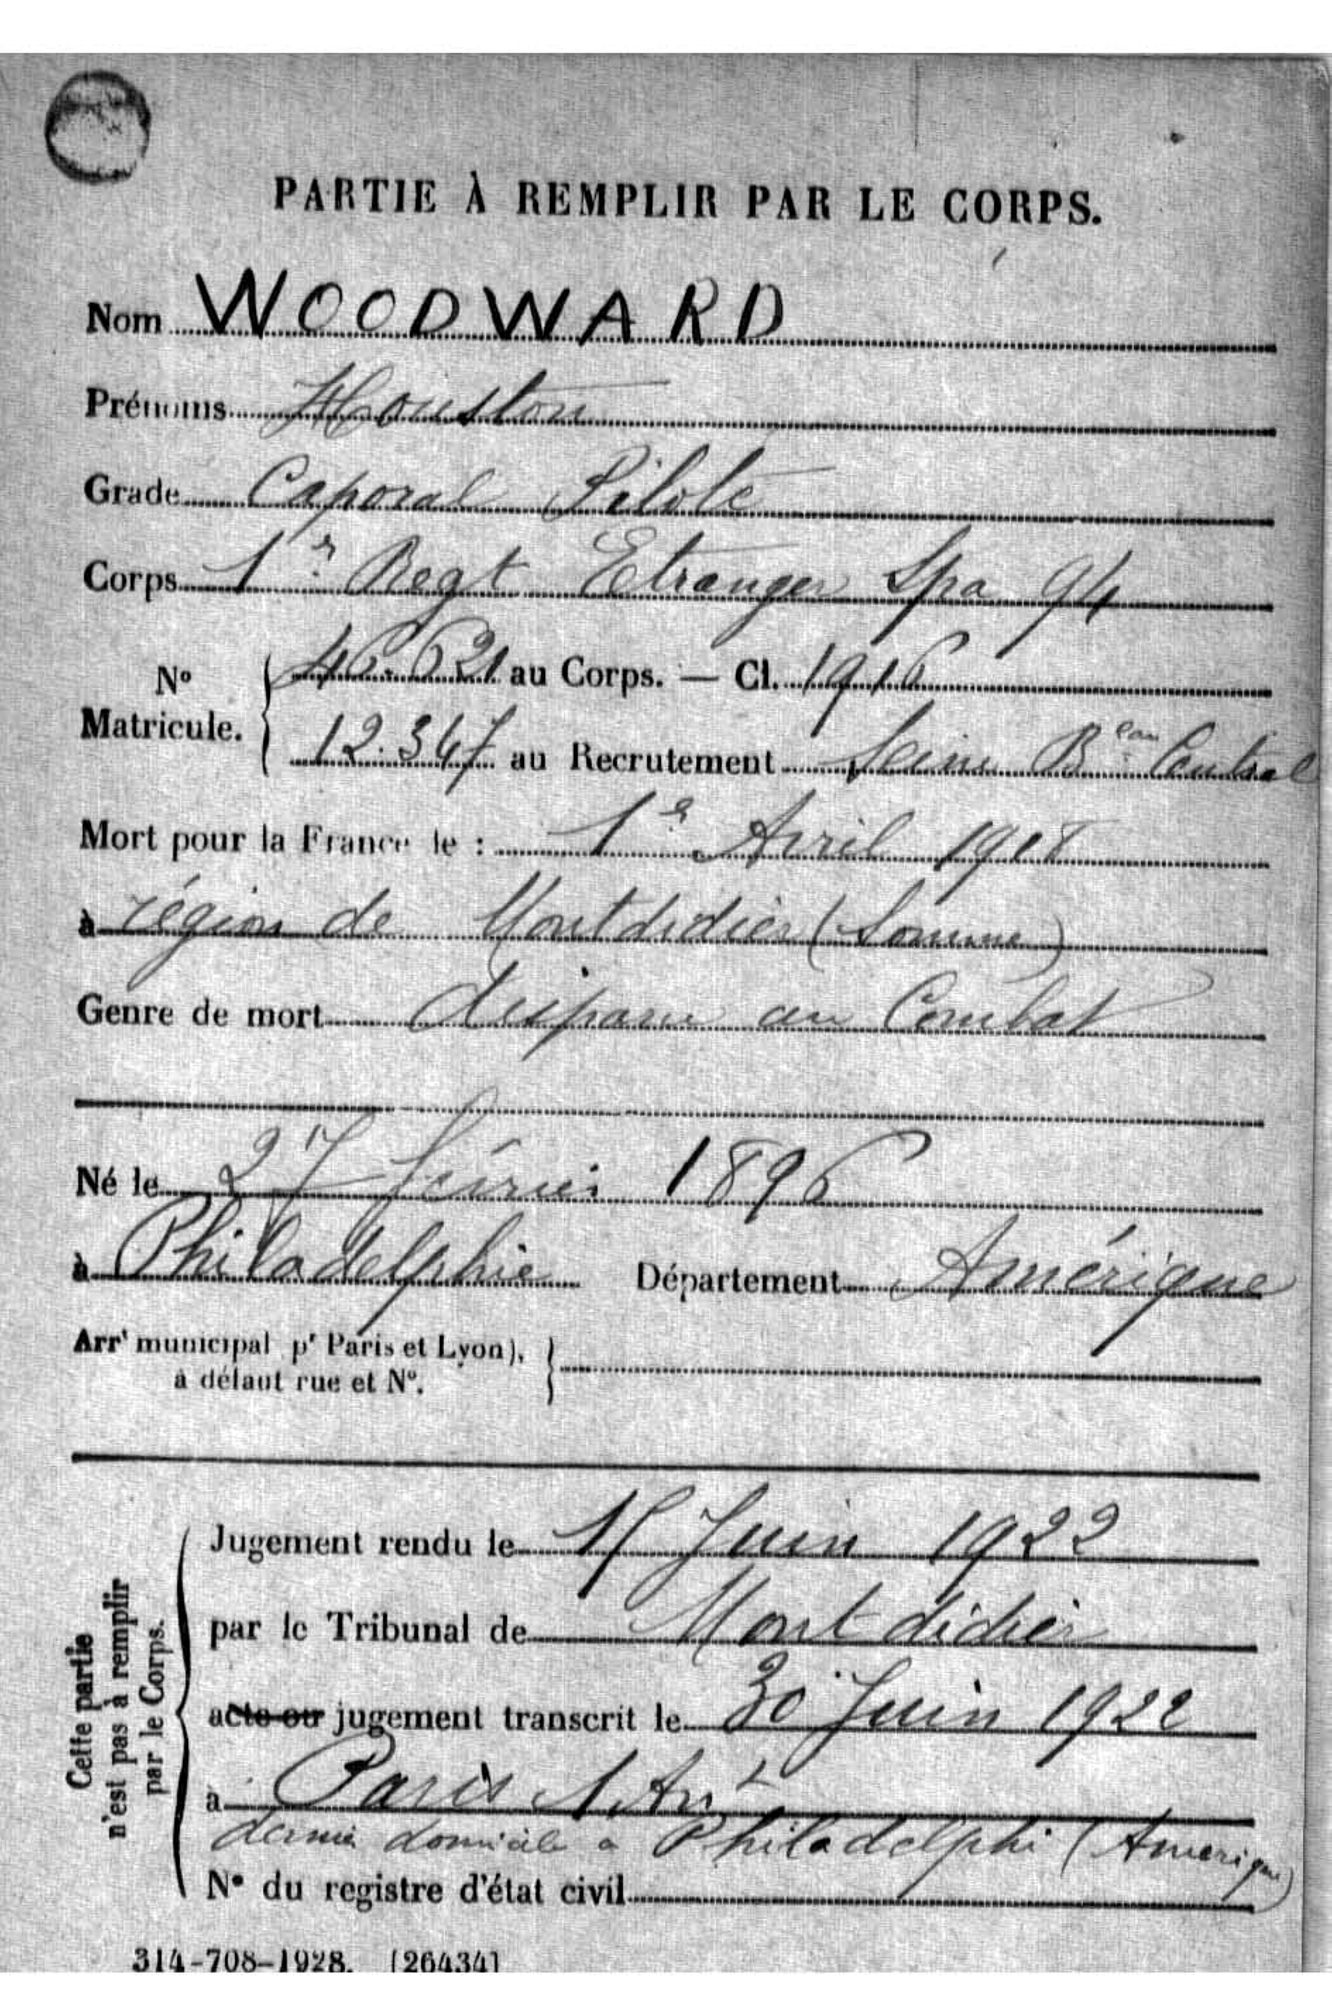 PARTIE À REMPLIR PAR LE CORPS.
Nom WOODWARD
Prénoms Houston
Grade Caporal Pilote
Corps 1er Regt Etranger Spa 94
No Matricule. { 46.621 au Corps. — Cl. 1916
12.347 au Recrutement Seine Beau Central
Mort pour la France le : 1er Avril 1918
à région de Montdidier (Somme)
Genre de mort disparu au Combat
Né le 27 février 1896
à Philadelphie Département Amérique
Arrt municipal pr Paris et Lyon),
à défaut rue et No.
Cette partie n'est pas à remplir par le Corps.
Jugement rendu le 15 Juin 1922
par le Tribunal de Montdidier
acte ou jugement transcrit le 30 Juin 1922
à Paris 1 Art
dernier domicile à Philadelphi (Amerique)
No du registre d'état civil
314-708-1928. [26434]